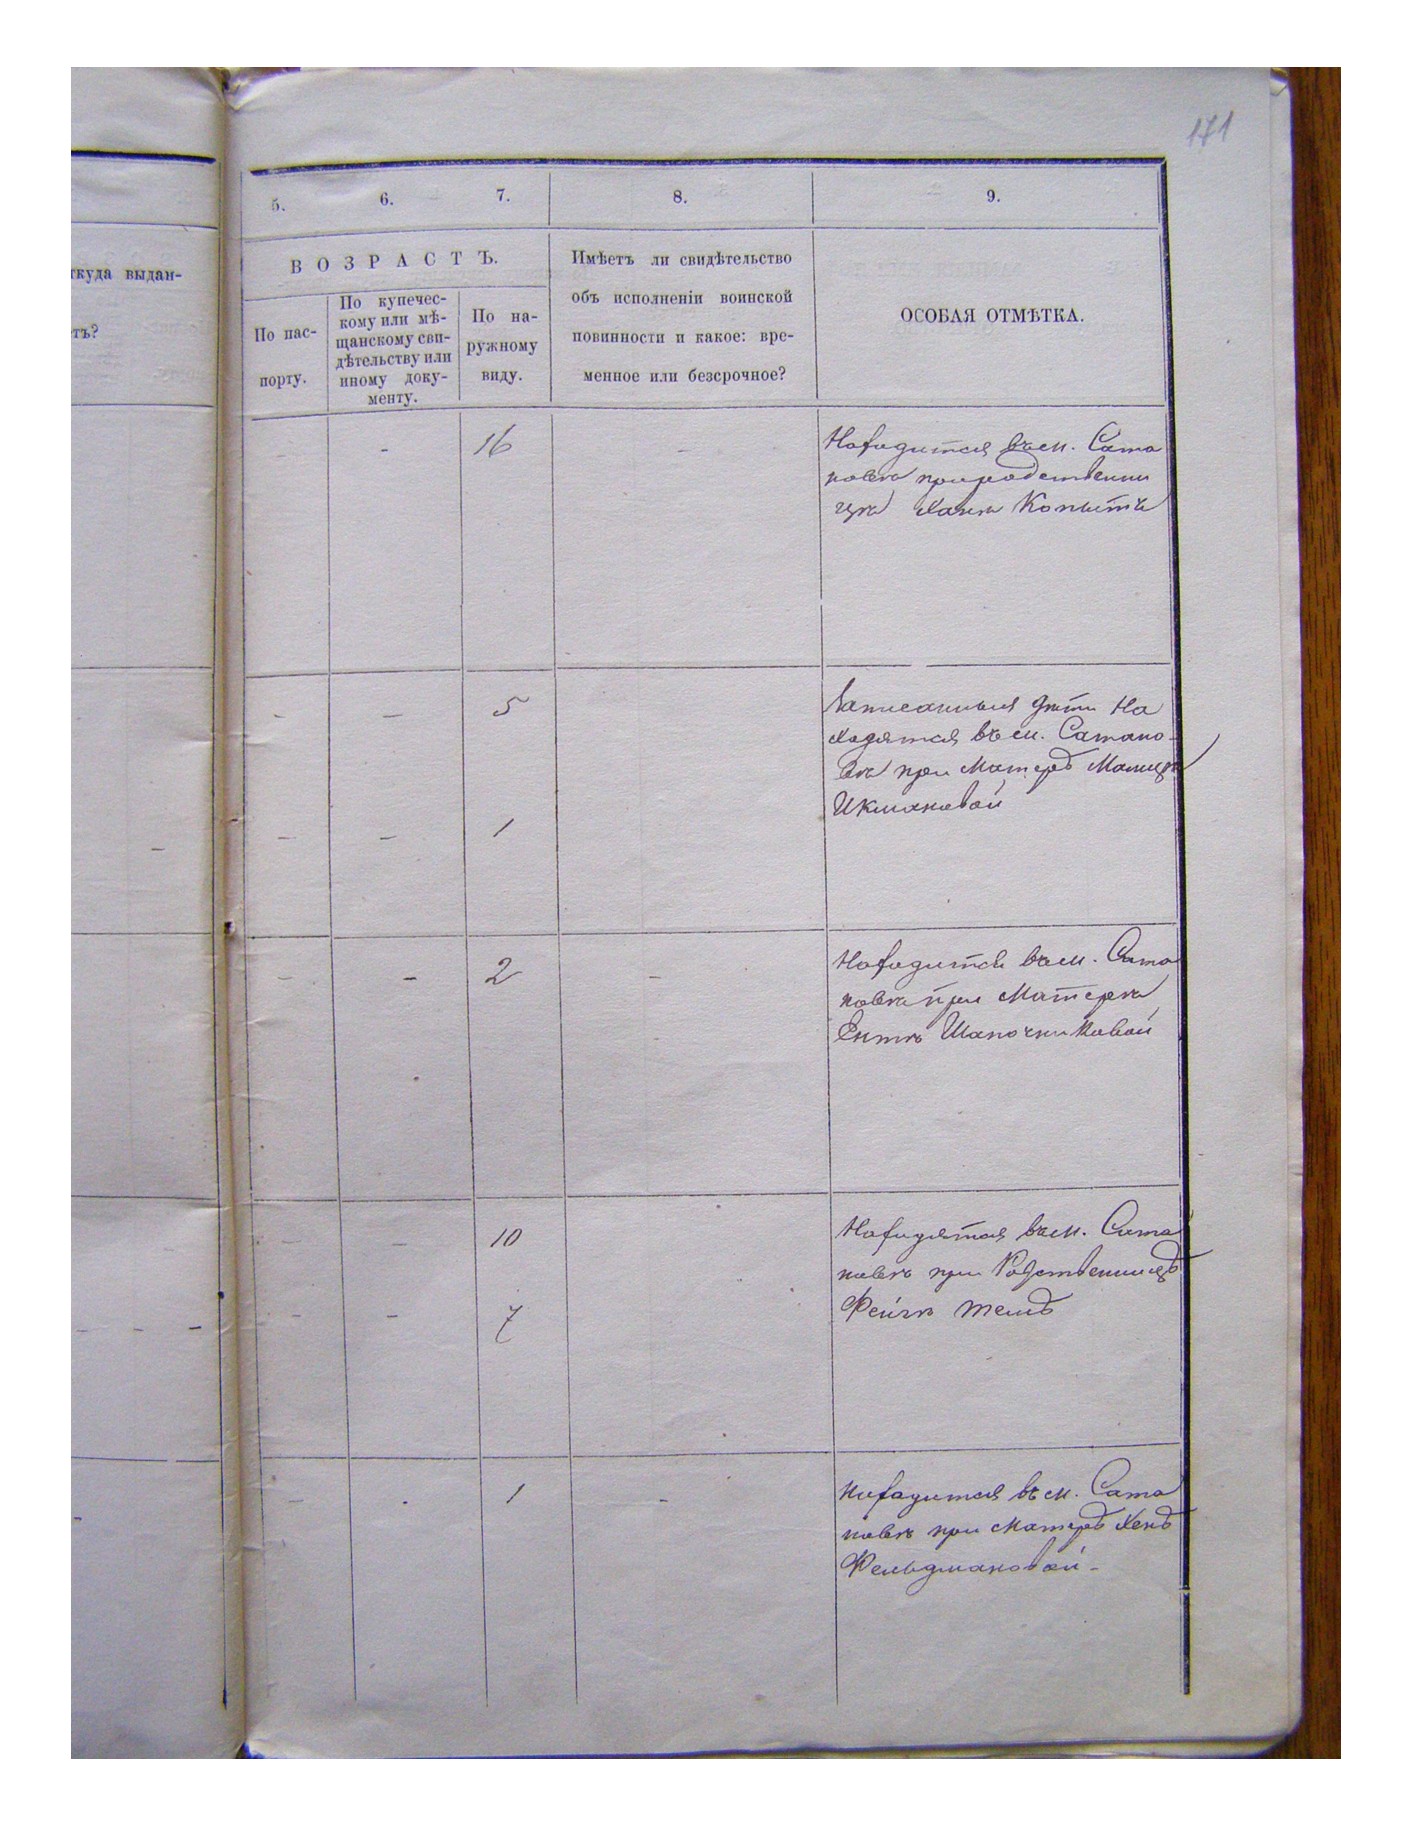 171
5. 6. 7. 8. 9.
ткуда выдан-
тъ?
ВОЗРАСТЪ.
По пас-
порту.
По купечес-
кому или мѣ-
щанскому сви-
дѣтельству или
иному доку-
менту.
По на-
ружному
виду.
Имѣетъ ли свидѣтельство
объ исполненіи воинской
повинности и какое: вре-
менное или безсрочное?
ОСОБАЯ ОТМѢТКА.
- - 16 -
Находится въ м. Сата
новѣ при родственни
цѣ Ханѣ Копытъ
- - 5
- - 1
Записанныя дѣти на
ходятся въ м. Сатано-
вѣ при матерѣ Малцѣ
Икмановой
- - 2 -
Находится въ м. Сата
новѣ при матерѣ
Ентѣ Шапочниковой
- - 10
- - 7
Находятся въ м. Сата
новѣ при родственницѣ
Фейгѣ
- - 1 -
Находится въ м. Сата
новѣ при матерѣ Хенѣ
Фельдмановой -